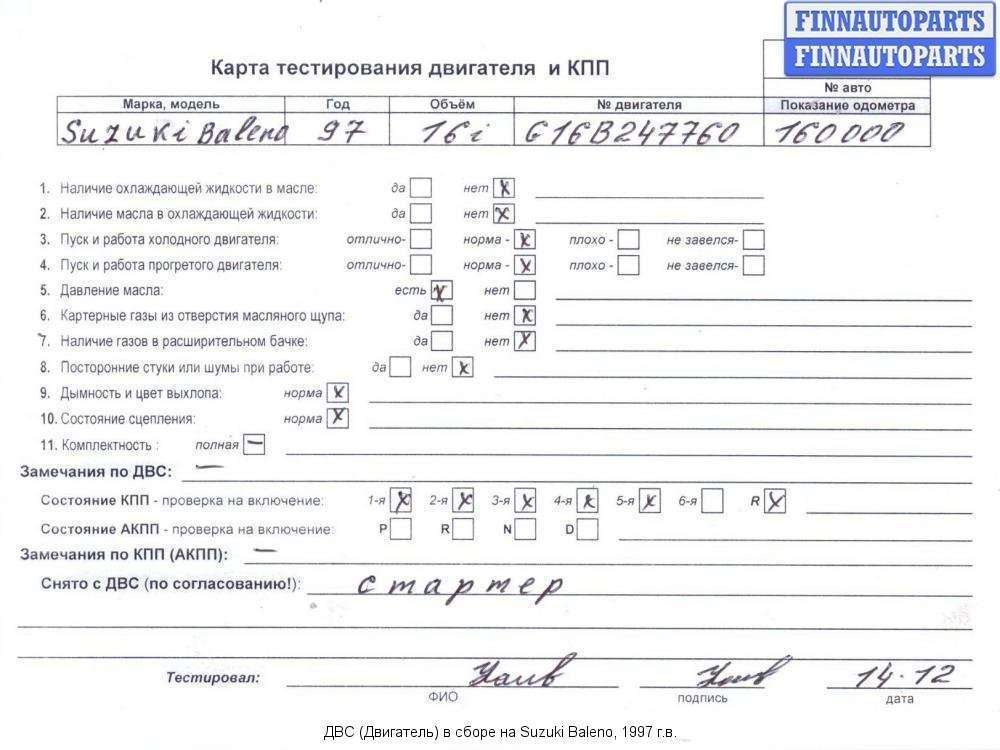 FINNAUTOPARTS
FINNAUTOPARTS
Карта тестирования двигателя и КПП
№ авто
Марка, модель Год Объём № двигателя Показание одометра
Suzuki Baleno 97 16i G16B247760 160000
1. Наличие охлаждающей жидкости в масле: да нет x
2. Наличие масла в охлаждающей жидкости: да нет x
3. Пуск и работа холодного двигателя: отлично- норма - x плохо - не завелся-
4. Пуск и работа прогретого двигателя: отлично- норма - x плохо - не завелся-
5. Давление масла: есть x нет
6. Картерные газы из отверстия масляного щупа: да нет x
7. Наличие газов в расширительном бачке: да нет x
8. Посторонние стуки или шумы при работе: да нет x
9. Дымность и цвет выхлопа: норма x
10. Состояние сцепления: норма x
11. Комплектность : полная —
Замечания по ДВС: —
Состояние КПП - проверка на включение: 1-я x 2-я x 3-я x 4-я x 5-я x 6-я R x
Состояние АКПП - проверка на включение: P R N D
Замечания по КПП (АКПП): —
Снято с ДВС (по согласованию!): стартер
Тестировал: 14.12
ФИО подпись дата
ДВС (Двигатель) в сборе на Suzuki Baleno, 1997 г.в.